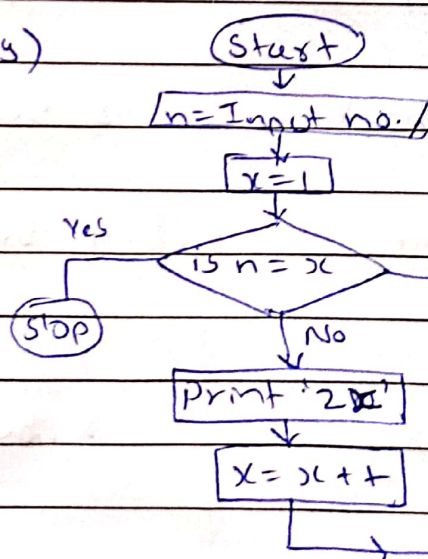 y)
Start
n=Input no.
x=1
Yes
is n = x
Stop
No
Print '2x'
x = x + +